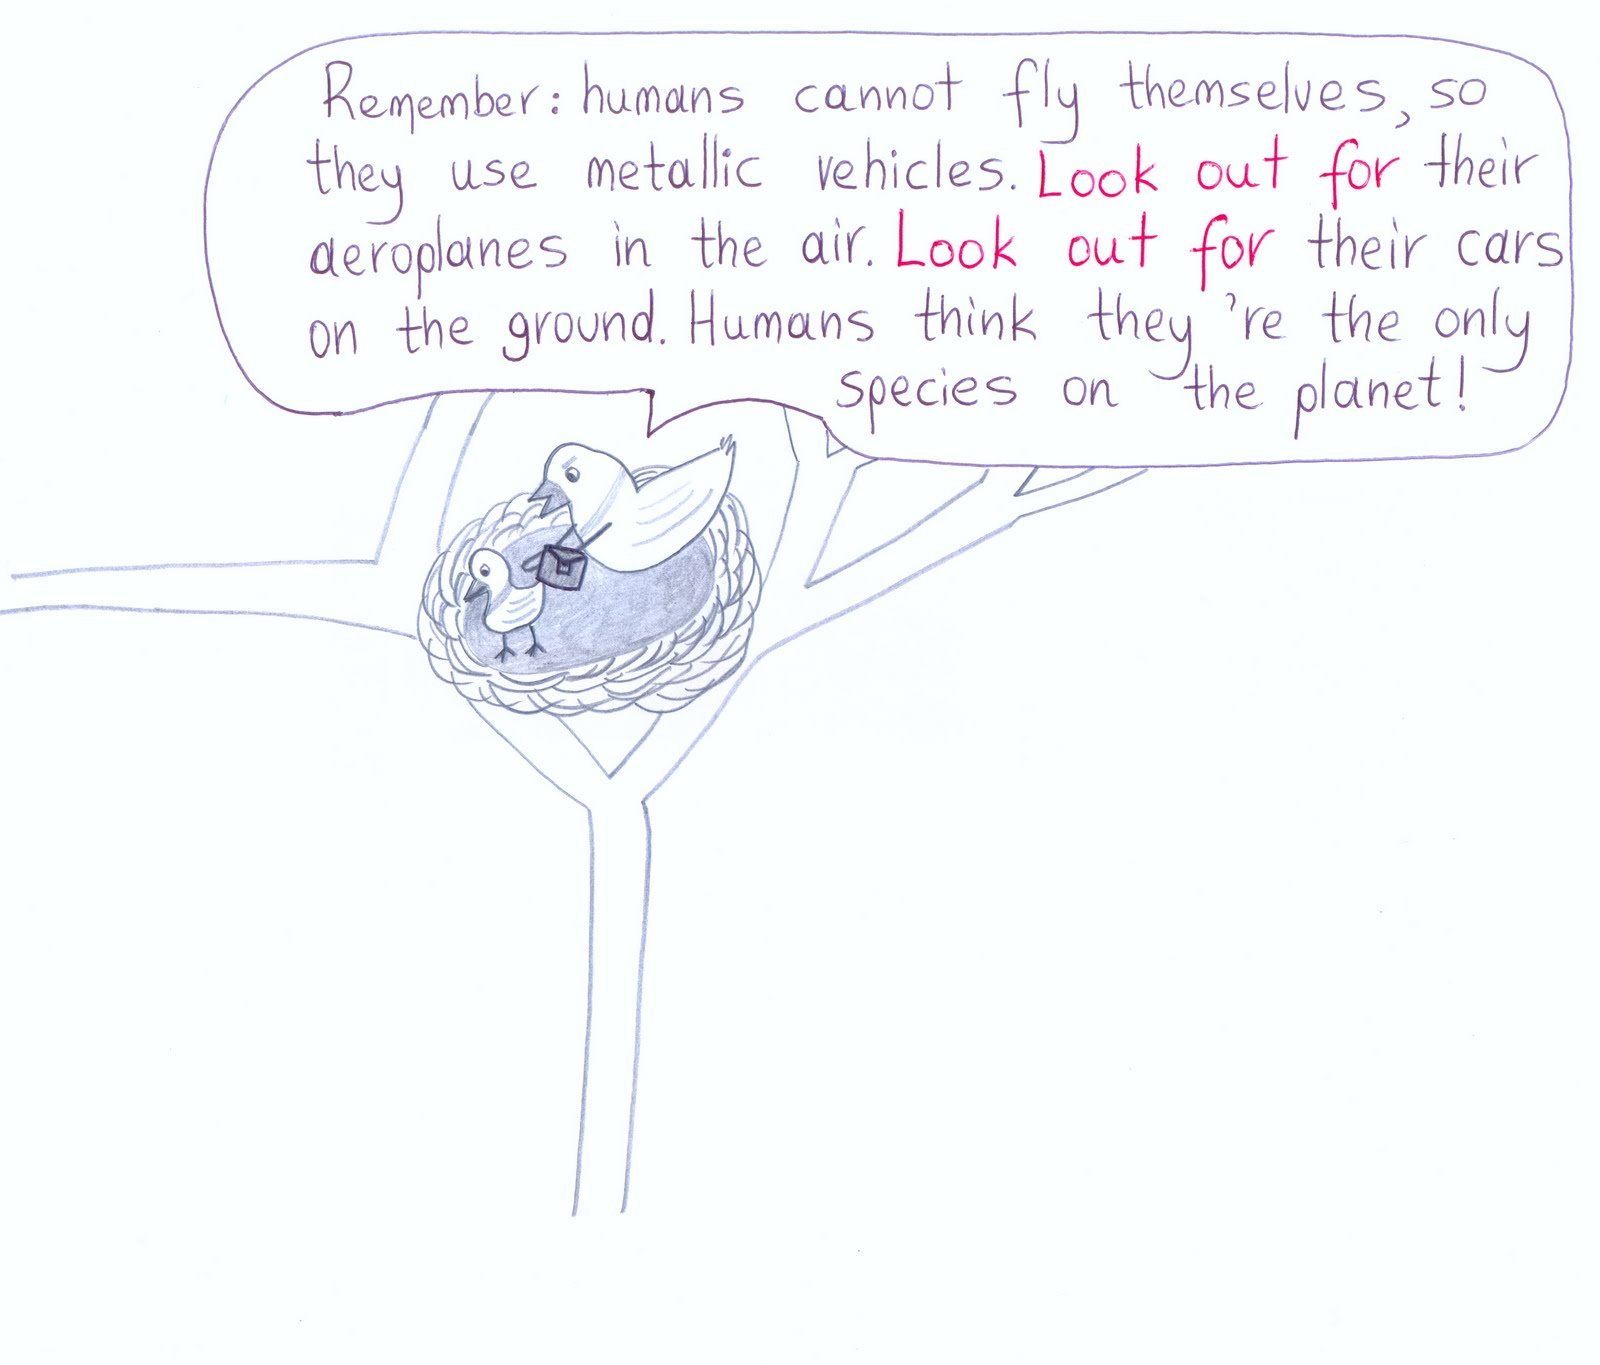 Remember: humans cannot fly themselves, so
they use metallic vehicles. Look out for their
aeroplanes in the air. Look out for their cars
on the ground. Humans think they're the only
species on the planet!